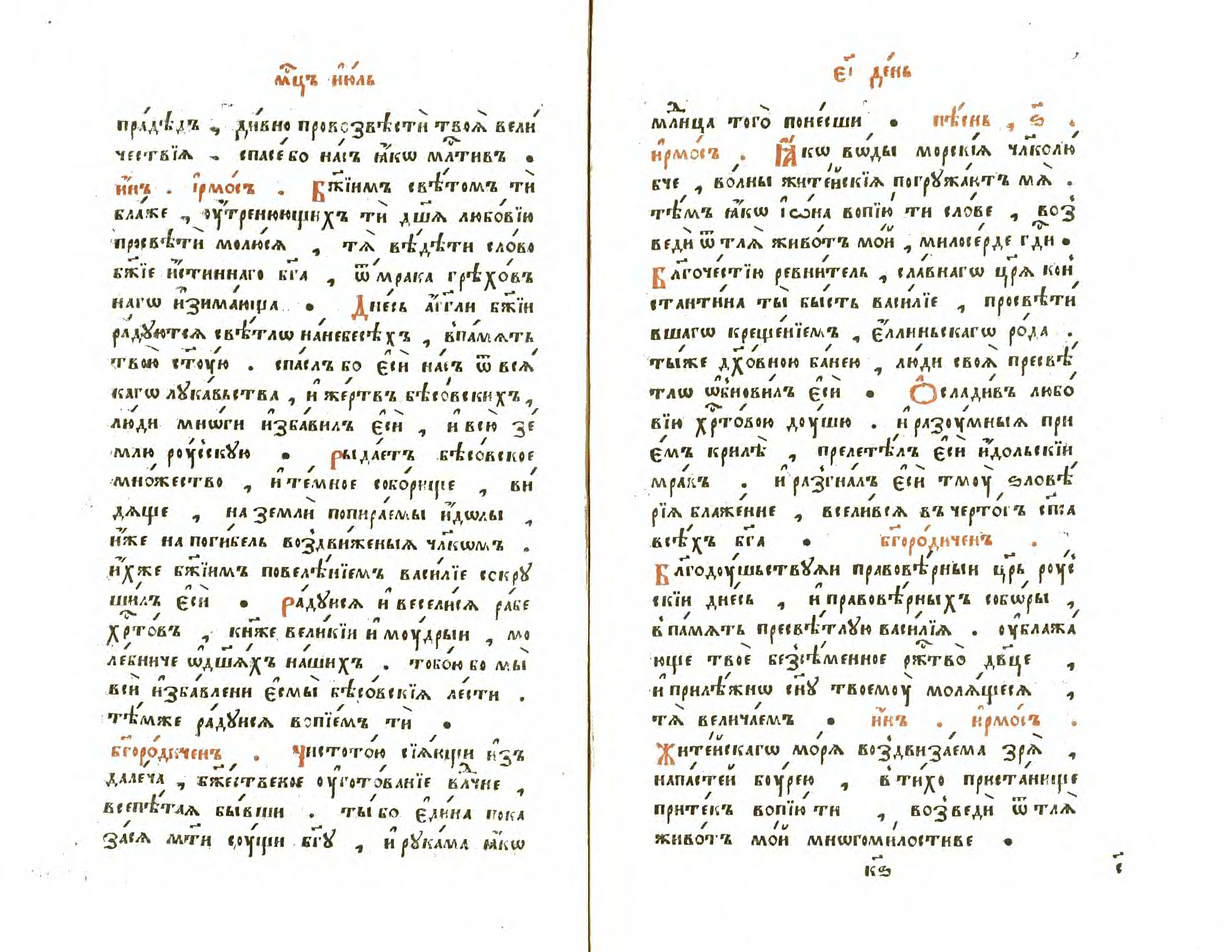 мⷭ҇цъ ию́ль
пра́дѣдъ , ди́вно провозвѣстѝ твоѧ̀ вели́
че́ствїѧ . спасе́ бо на́съ ꙗ҆́кѡ мл҇тивъ .
и҆́нъ . і҆рмо́съ . Бж҃їимъ свѣ́томъ тѝ
бла́же , ᲂу҆́тренюющихъ тѝ дш҃ѧ любо́вїю
просвѣтѝ молю́сѧ , тѧ̀ вѣ́дѣти сло́во
бж҃їе и҆́стиннаго бг҃а , ѿ мра́ка грѣхо́въ
нагѡ и҆зима́юща . Дне́сь а҆́гг҃ли бж҃їи
ра́дуютсѧ свѣ́тлѡ нанебесѣ́хъ , впа́мѧть
твою̀ ст҃о́ую . спа́слъ бо є҆сѝ на́съ ѿ всѧ́
кагѡ лука́вьства , и҆ же́ртвъ бѣсо́вскихъ ,
лю́ди мнѡ́ги и҆зба́вилъ є҆сѝ , и҆ всю̀ зе́
млю роу́сскую . Рыда́етъ бѣсо́вское
мно́жество , и҆ те́мное собо́рище , ви́
дѧще , на землѝ попира́емы и҆́дѡлы ,
и҆́же на поги́бель воздви́женыѧ чл҃кѡмъ .
и҆́хже бж҃їимъ повелѣ́нїемъ васи́лїе сокру
ши́лъ є҆сѝ . Ра́дуисѧ и҆ весели́сѧ ра́бе
хрⷭ҇то́въ , кнѧ́же вели́кїи и҆ моу́дрыи , мо
ле́бниче ѡ҆ дш҃а́хъ на́шихъ . тобо́ю бо мы̀
всѝ и҆зба́влени є҆смы̀ бѣсо́вскїѧ ле́сти .
тѣ́мже ра́дуисѧ вопїе́мъ тѝ .
бг҃оро́диченъ . Чистото́ю сїѧ́ющи и҆зъ
дале́ча , бж҃е́ственое ᲂу҆гото́ванїе влⷣчне ,
всепѣ́таѧ бы́вши . ты́ бо є҆ди́на пока
за́сѧ мт҃и соу́щи бг҃у , и҆ рука́ма ꙗ҆́кѡ
є҃і де́нь
млⷣнца того̀ поне́сши . пѣ́снь , ѕ҃ .
и҆рмо́съ . Ꙗ҆́кѡ во́ды морскі́ѧ чл҃колю́
бче , во́лны жите́искїѧ погружа́ютъ мѧ̀ .
тѣ́мъ ꙗ҆́кѡ і҆ѡ́на вопїю́ ти сло́ве , воз̾
ведѝ ѿ тлѧ̀ живо́тъ мо́й , милосе́рде гдⷭ҇и .
Благоче́стїю ревни́тель , сла́внагѡ цр҃ѧ̀ кон
стантина ты̀ бы́сть васи́лїе , просвѣти́
вшагѡ креще́нїемъ , є҆́ллиньскагѡ ро́да .
ты́же дх҃о́вною ба́нею , лю́ди своѧ̀ пресвѣ́
тлѡ ѡ҆бнови́лъ є҆сѝ . Ѻ҆слади́въ любо́
вїю хрⷭ҇то́вою доу́шю . и҆ разоу́мныѧ при
є́мъ крилѣ̀ , прелетѣ́лъ є҆сѝ и҆́дольскїи
мра́къ . и҆ разгна́лъ є҆сѝ тмоу̀ ѕловѣ́
рїѧ блаже́нне , всели́всѧ въ черто́гъ сп҃са
всѣ́хъ бг҃а . бг҃оро́диченъ .
Благодоу́шьствуѧи правовѣ́рныи цр҃ь роу́с
скїи дне́сь , и҆ правовѣ́рныхъ собѡ́ры ,
впа́мѧть пресвѣ́тлую васи́лїѧ . ᲂу҆блажа́
юще твоѐ безсѣ́менное ржⷭ҇тво̀ дв҃це ,
и҆ прилѣ́жнѡ сн҃у твоемоу̀ молѧ́щесѧ ,
тѧ̀ велича́емъ . и҆́нъ . и҆рмо́съ .
Жите́искагѡ мо́рѧ воздвиза́ема зрѧ̀ ,
напа́стей боу́рею , в ти́хо приста́нище
прите́къ вопїю́ ти , возведѝ ѿ тлѧ̀
живо́тъ мо́й многоми́лостиве .
кѕ҃